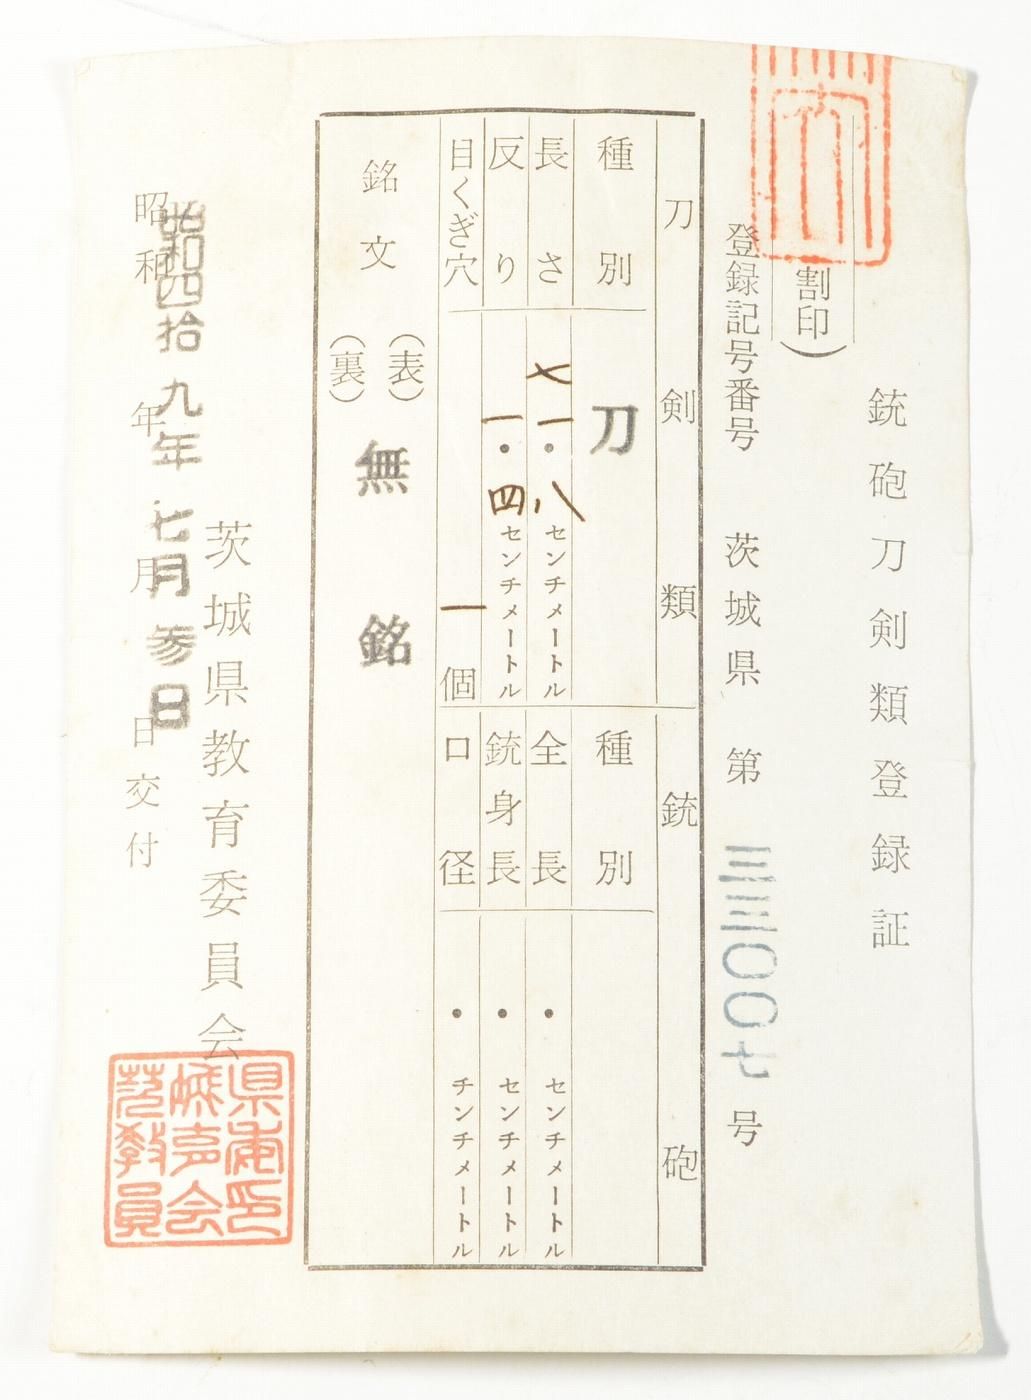 銃砲刀剣類登録証
(割印)
登録記号番号 茨城県 第 三三〇〇七 号
刀剣類
種別 刀
長さ 七一・八センチメートル
反り 一・四センチメートル
目くぎ穴 一個
銘文
(表) 無銘
(裏)
銃砲
種別
全長 ・センチメートル
銃身長 ・センチメートル
口径 ・チンチメートル
茨城県教育委員会
昭和 年 月 日交付
昭和四拾九年七月参日